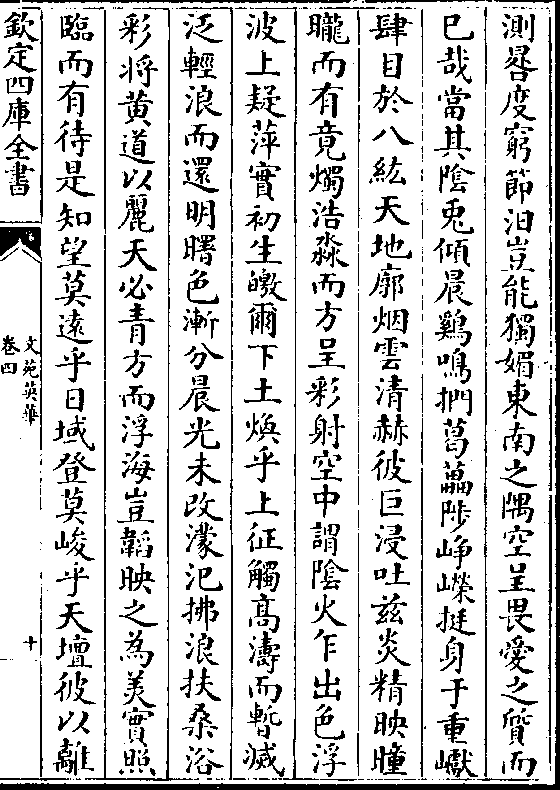 測晷度窮節汨豈能獨媚東南之隅空呈畏愛之質而
已哉當其陰兎傾晨鷄鳴捫葛藟陟崢嶸挺身于重巘
肆目於八紘天地廓烟雲清赫彼巨浸吐兹炎精映曈
曨而有竟燭浩淼而方呈彩射空中謂陰火乍出色浮
波上疑萍實初生皦爾下土煥乎上征觸髙濤而暫滅
泛輕浪而還明曙色漸分晨光未改濛汜拂浪扶桑浴
彩将黄道以麗天必青方而浮海豈韜映之為美實照
臨而有待是知望莫逺乎日域登莫峻乎天壇彼以離
欽定四庫全書
文苑英華
卷四
十